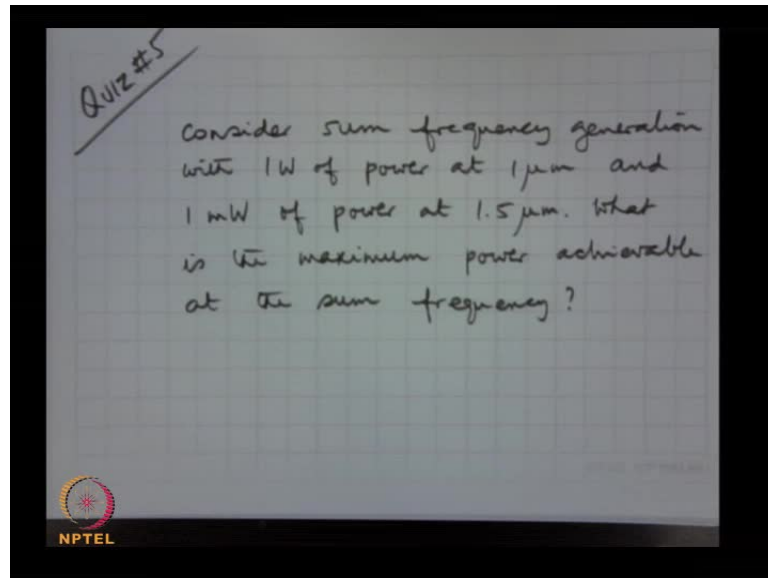 Quiz #5
consider sum frequency generation
with 1W of power at 1 μm and
1 mW of power at 1.5 μm. What
is the maximum power achievable
at the sum frequency?
NPTEL